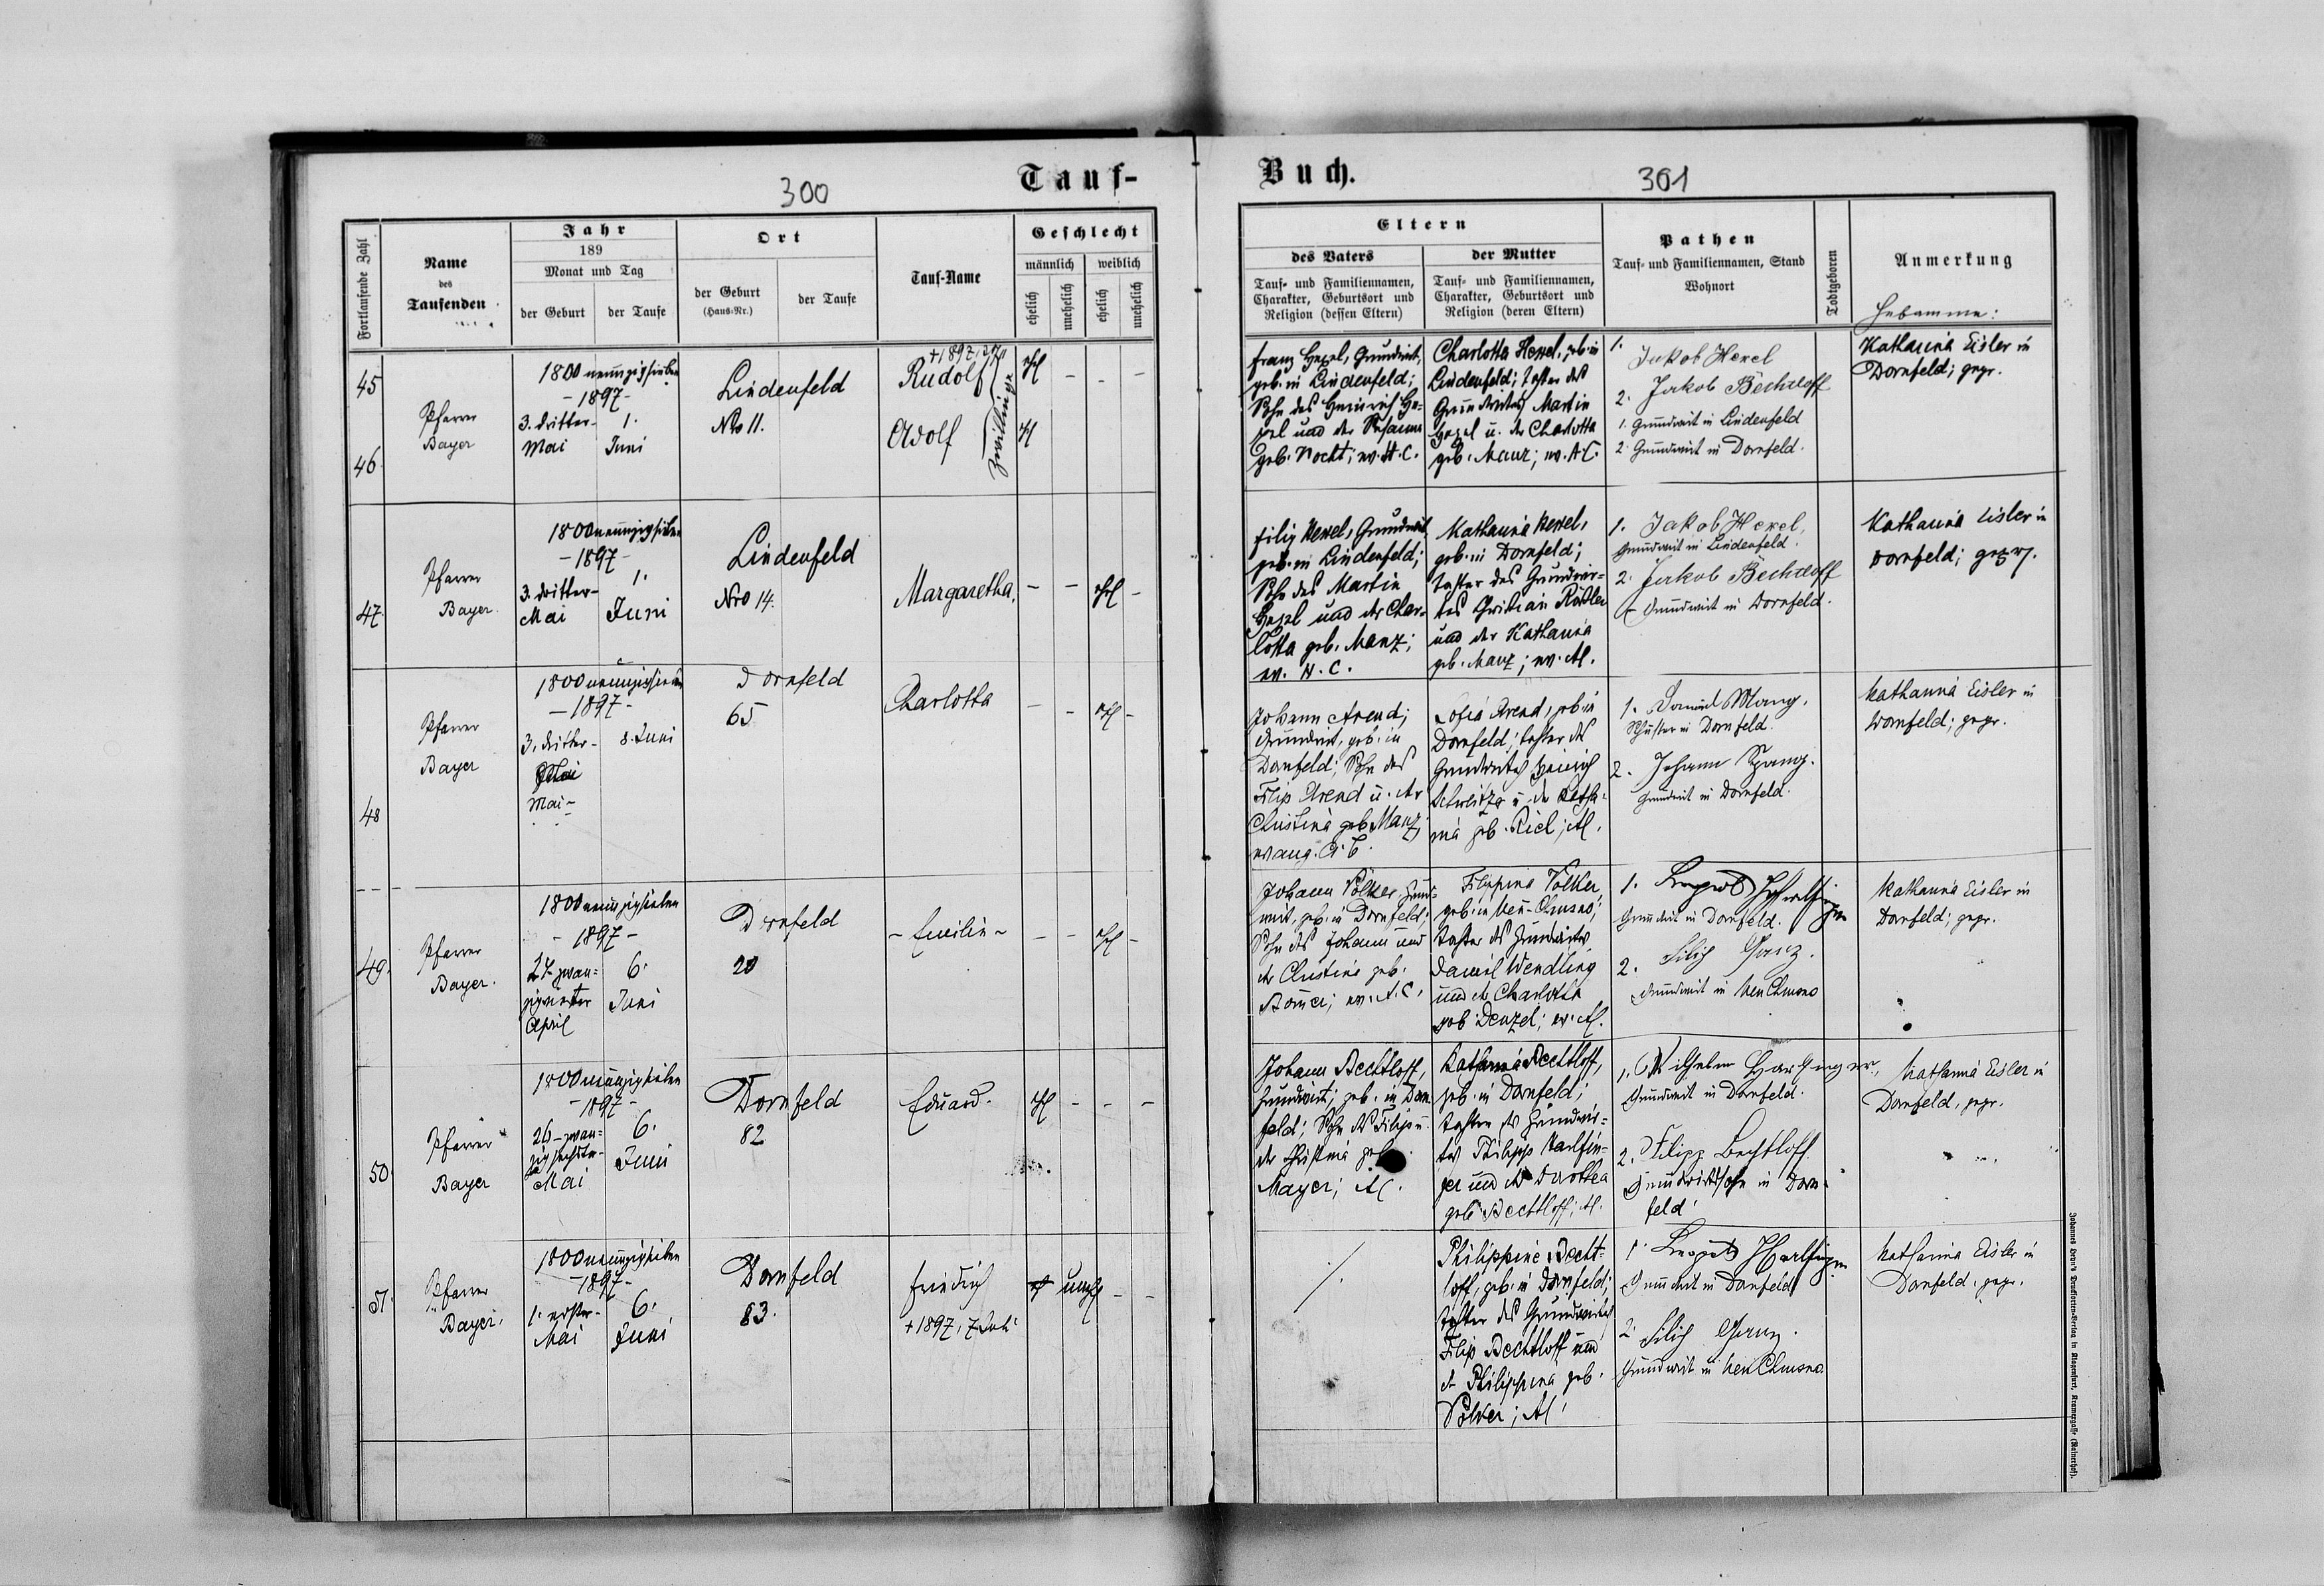 300
Tauf-
Buch.
301
Fortlaufende Zahl
Name
des
Taufenden
Jahr
189
Monat und Tag
der Geburt
der Taufe
Ort
der Geburt
(Haus-Nr.)
der Taufe
Tauf-Name
Geschlecht
männlich
weiblich
ehelich
unehelich
ehelich
unehelich
Eltern
des Vaters
Tauf- und Familiennamen,
Charakter, Geburtsort und
Religion (dessen Eltern)
der Mutter
Tauf- und Familiennamen,
Charakter, Geburtsort und
Religion (deren Eltern)
Pathen
Tauf- und Familiennamen, Stand
Wohnort
Todtgeboren
Anmerkung
Hebamme:
45
46
Pfarrer
Bayer
1800 neunzigsieben
-1897-
3. dritter-
Mai
1.
Juni
Lindenfeld
Nro 11.
Rudolf
Adolf
Zwillinge
Franz Hexel, Grundwirt,
geb. in Lindenfeld;
Sohn des Heinrich He-
xel und der Susanna
geb. Nocht; ev. A.C.
Charlotta Hexel, geb. in
Lindenfeld; Tochter des
Grundwirtes Martin
Hexel u. der Charlotta
geb. Manz; ev. A.C.
1.
Jakob Hexel
2. Jakob Bechtloff
1. Grundwirt in Lindenfeld
2. Grundwirt in Dornfeld.
Katharina Eisler in
Dornfeld; gepr.
47
Pfarrer
Bayer.
1800 neunzigsieben
-1897-
3. dritter-
Mai
1.
Juni
Lindenfeld
Nro 14.
Margaretha.
Filip Hexel, Grundwirt
geb. in Lindenfeld;
Sohn des Martin
Hexel und der Char-
lotta geb. Manz;
ev. A.C.
Katharina Hexel,
geb. in Dornfeld;
Tochter des Grundwir-
tes
und der Katharina
geb. Manz; ev. AC.
1. Jakob Hexel,
Grundwirt in Lindenfeld.
2. Jakob Bechtloff
Grundwirt in Dornfeld.
Katharina Eisler in
Dornfeld; gepr.
48
Pfarrer
Bayer
1800 neunzigsieben
-1897-
3. dritter-
Mai-
8. Juni
Dornfeld
65
Charlotta
Johann Arend;
Grundwirt, geb. in
Dornfeld; Sohn des
Filip Arend u. der
Christina geb. Manz;
evang. A.C.
Sofia Arend, geb. in
Dornfeld; Tochter des
Grundwirtes Heinrich
Schweitzer u. der Katha-
rina geb. ; AC.
1. Daniel Mang.
Schuster in Dornfeld.
2. Johann Spang.
Grundwirt in Dornfeld.
Katharina Eisler in
Dornfeld; gepr.
49.
Pfarrer
Bayer.
1800 neunzigsieben
-1897-
April
6.
Juni
Dornfeld
20
- Emilie -
Johann Völker, Grund-
wirt, geb. in Dornfeld;
Sohn des Johann und
der Christina geb.
ev. A.C.
Filippina Völker
geb. in Neu-Chrusno;
Tochter des Grundwirtes
Daniel Wendling
und der Charlotta
geb. Denzel; ev. AC.
1. Leopold Harlfinger
Grundwirt in Dornfeld.
2. Filip Ganz.
Grundwirt in Neu Chrusno
Katharina Eisler in
Dornfeld; gepr.
50
Pfarrer
Bayer
1800 neunzigsieben
-1897-
26 - zwan-
zigsechster-
Mai
6.
Juni
Dornfeld
82
Eduard.
Johann Bechtloff,
Grundwirt; geb. in Dorn-
feld; Sohn des Filip u.
der Christina geb.
Mayer; AC.
Katharina Bechtloff,
geb. in Dornfeld;
Tochter des Grundwir-
tes Philipp Harlfin-
ger und der Dorothea
geb. Bechtloff; AC.
1. Wilhelm Harlfinger,
Grundwirt in Dornfeld.
2. Filipp Bechtloff
Grundwirtssohn in Dorn-
feld.
Katharina Eisler in
Dornfeld, gepr.
51.
Pfarrer
Bayer.
1800 neunzigsieben
-1897-
1. erster-
Mai
6.
Juni
Dornfeld
83.
Friedrich
+1897, 7 Juli
Philippine Becht-
loff, geb. in Dornfeld;
Tochter des Grundwirtes
Filip Bechtloff und
der Philippina geb.
Völker; AC.
1. Leopold Harlfinger
Grundwirt in Dornfeld
2. Filip Ganz.
Grundwirt in Neu Chrusno.
Katharina Eisler in
Dornfeld, gepr.
Johannes Heyn's Drucksorten-Verlag in Klagenfurt, Kramergasse (Rainerhof).